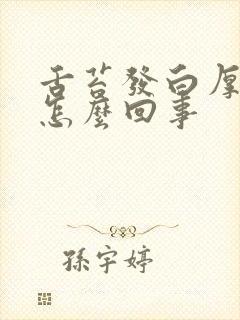 舌苔發白厚
怎麼回事
孫宇婷